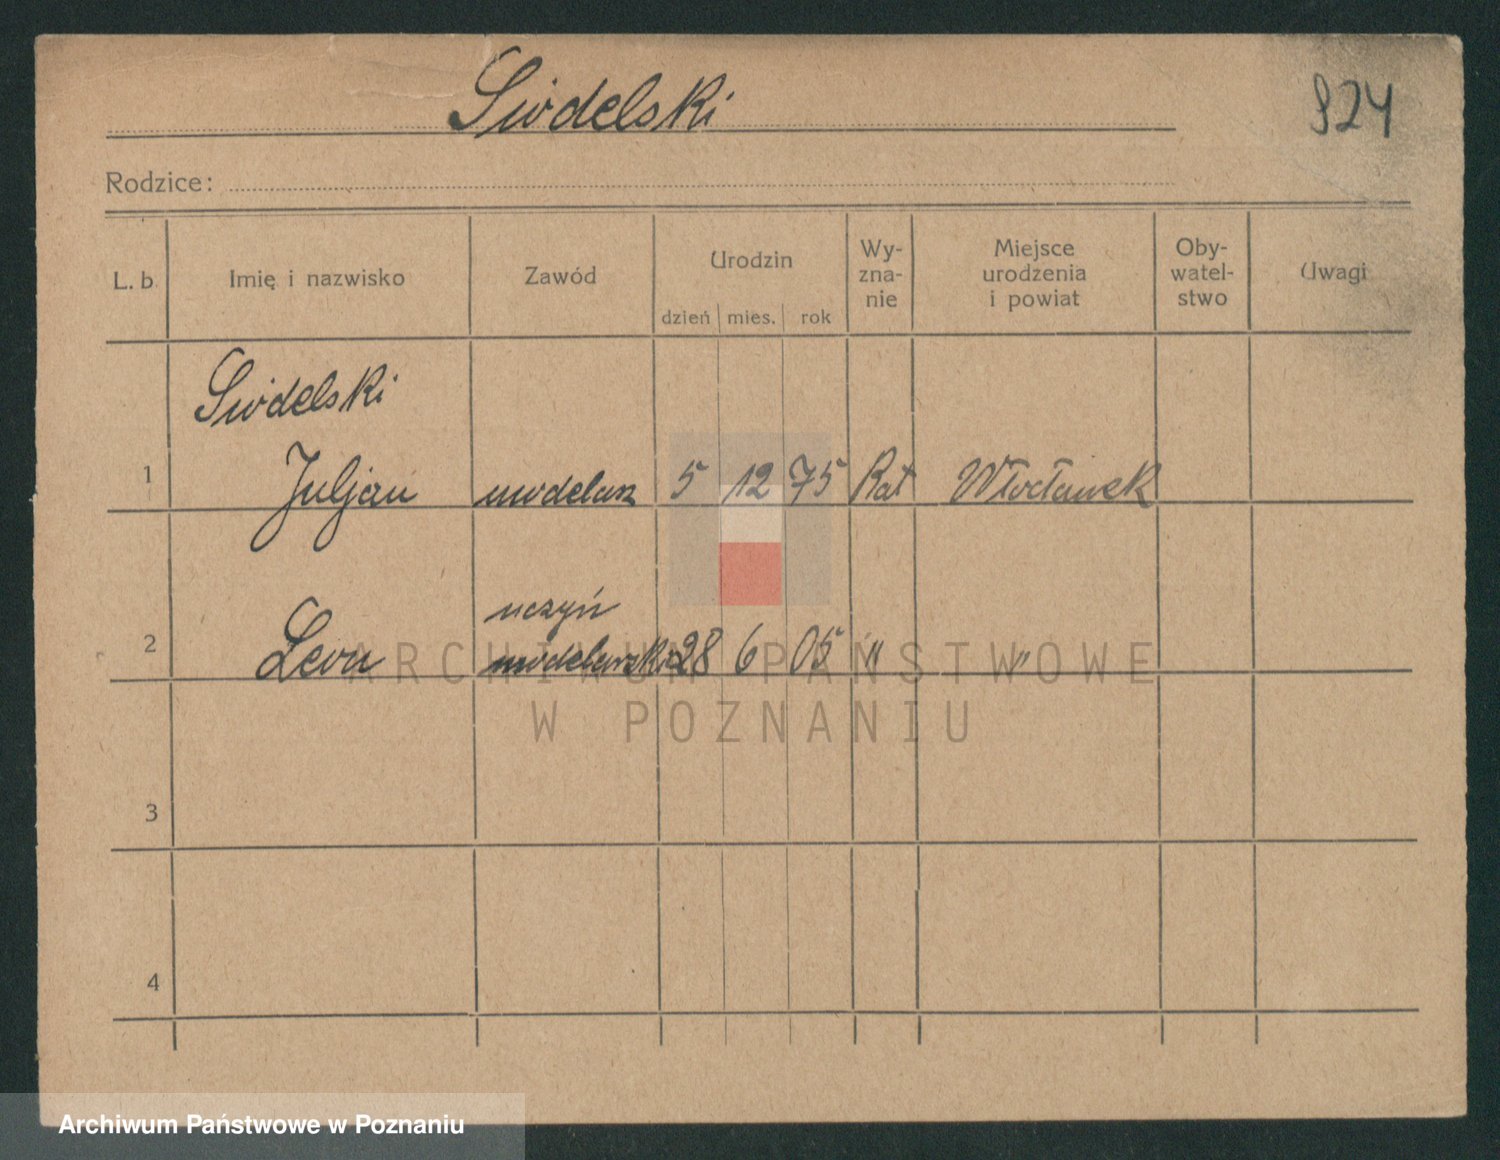 Siódelski
924
Rodzice:
L. b
Imię i nazwisko
Zawód
Urodzin
dzień mies. rok
Wy-
zna-
nie
Miejsce
urodzenia
i powiat
Oby-
watel-
stwo
Uwagi
Siódelski
1 Juljan modelarz 5 12 75 Kat Włocławek
uczyń
2 Leon modelarski 28 6 05 " "
3
4
ARCHIWUM PAŃSTWOWE
W POZNANIU
Archiwum Państwowe w Poznaniu